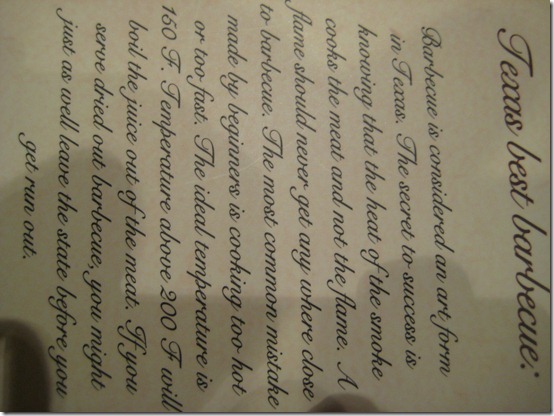 Texas best barbecue:
Barbecue is considered an art form
in Texas. The secret to success is
knowing that the heat of the smoke
cooks the meat and not the flame. A
flame should never get any where close
to barbecue. The most common mistake
made by beginners is cooking too hot
or too fast. The ideal temperature is
150 F. Temperature above 200 F will
boil the juice out of the meat. If you
serve dried out barbecue, you might
just as well leave the state before you
get run out.